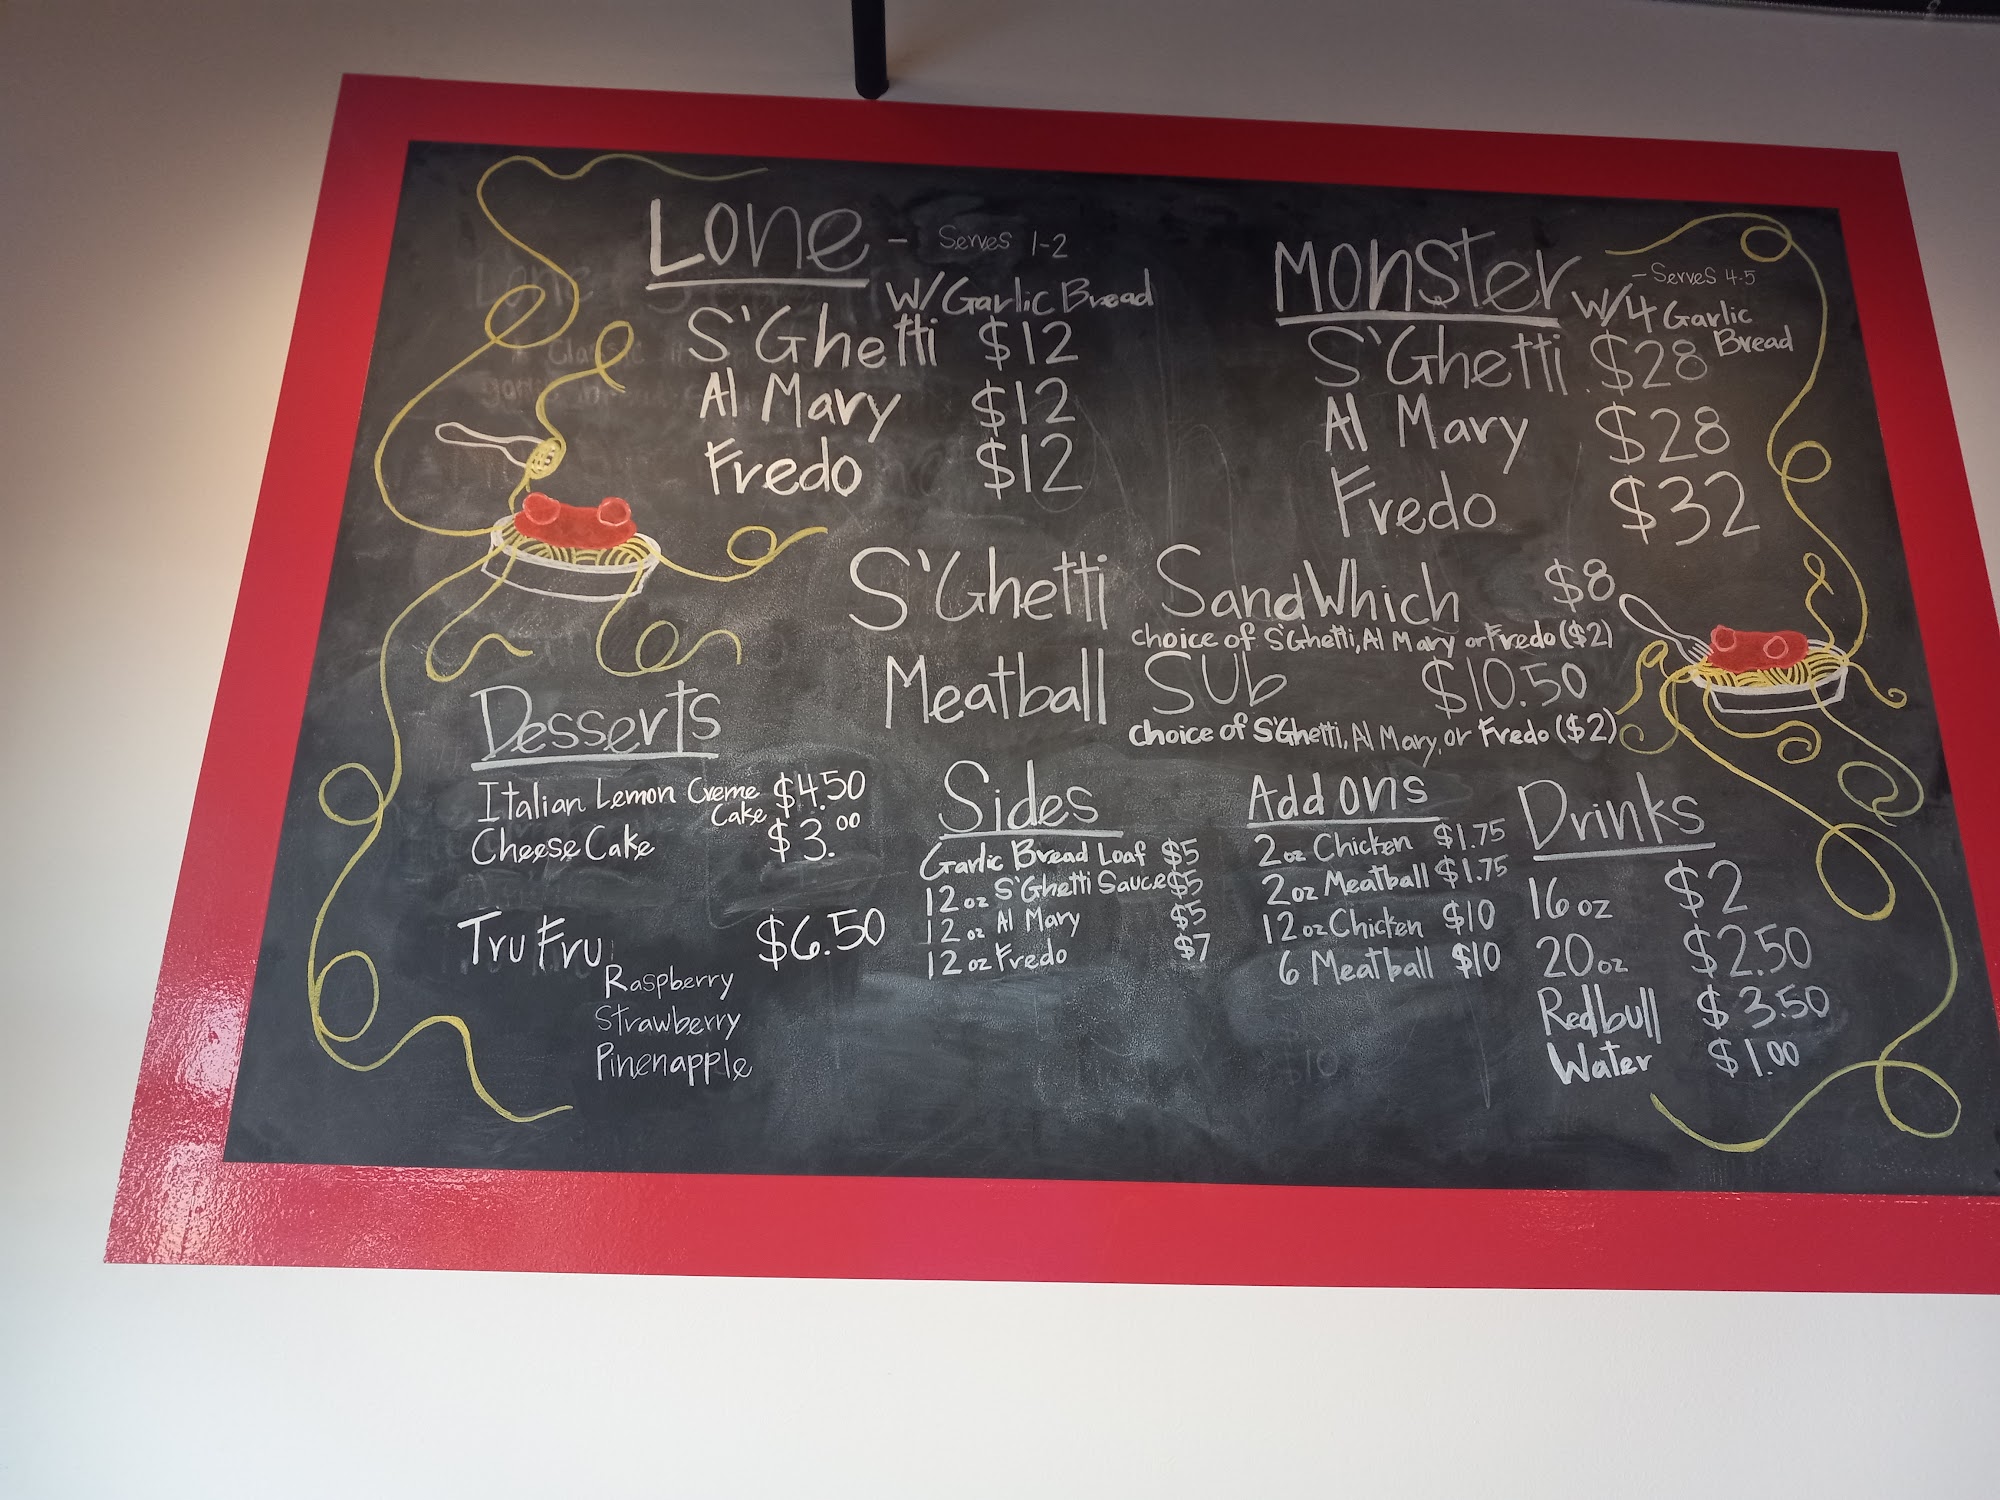 Lone - Serves 1-2
W/ Garlic Bread
S'Ghetti $12
Al Mary $12
Fredo $12
Monster - Serves 4-5
W/4 Garlic Bread
S'Ghetti $28
Al Mary $28
Fredo $32
S'Ghetti SandWhich $8
choice of S'Ghetti, Al Mary or Fredo ($2)
Meatball SUb $10.50
choice of S'Ghetti, Al Mary, or Fredo ($2)
Desserts
Italian Lemon Creme Cake $4.50
Cheese Cake $3.00
Tru Fru $6.50
Raspberry
Strawberry
Pinenapple
Sides
Garlic Bread Loaf $5
12oz S'Ghetti Sauce $5
12oz Al Mary $5
12oz Fredo $7
Add ons
2oz Chicken $1.75
2oz Meatball $1.75
12oz Chicken $10
6 Meatball $10
Drinks
16oz $2
20oz $2.50
Redbull $3.50
Water $1.00